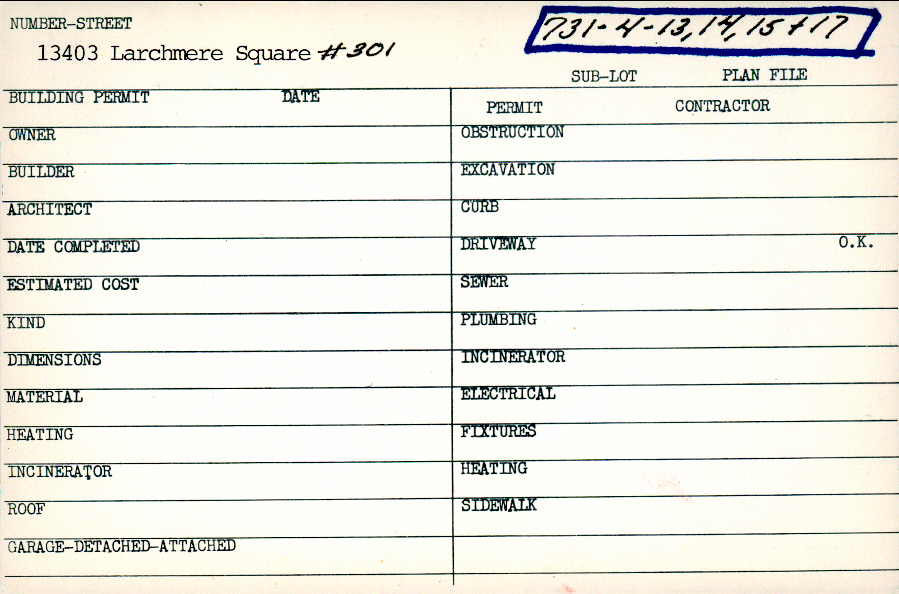 NUMBER-STREET
731-4-13,14,15+17
13403 Larchmere Square #301
SUB-LOT PLAN FILE
BUILDING PERMIT DATE
PERMIT CONTRACTOR
OWNER
OBSTRUCTION
BUILDER
EXCAVATION
ARCHITECT
CURB
DATE COMPLETED
DRIVEWAY O.K.
ESTIMATED COST
SEWER
KIND
PLUMBING
DIMENSIONS
INCINERATOR
MATERIAL
ELECTRICAL
HEATING
FIXTURES
INCINERATOR
HEATING
ROOF
SIDEWALK
GARAGE-DETACHED-ATTACHED